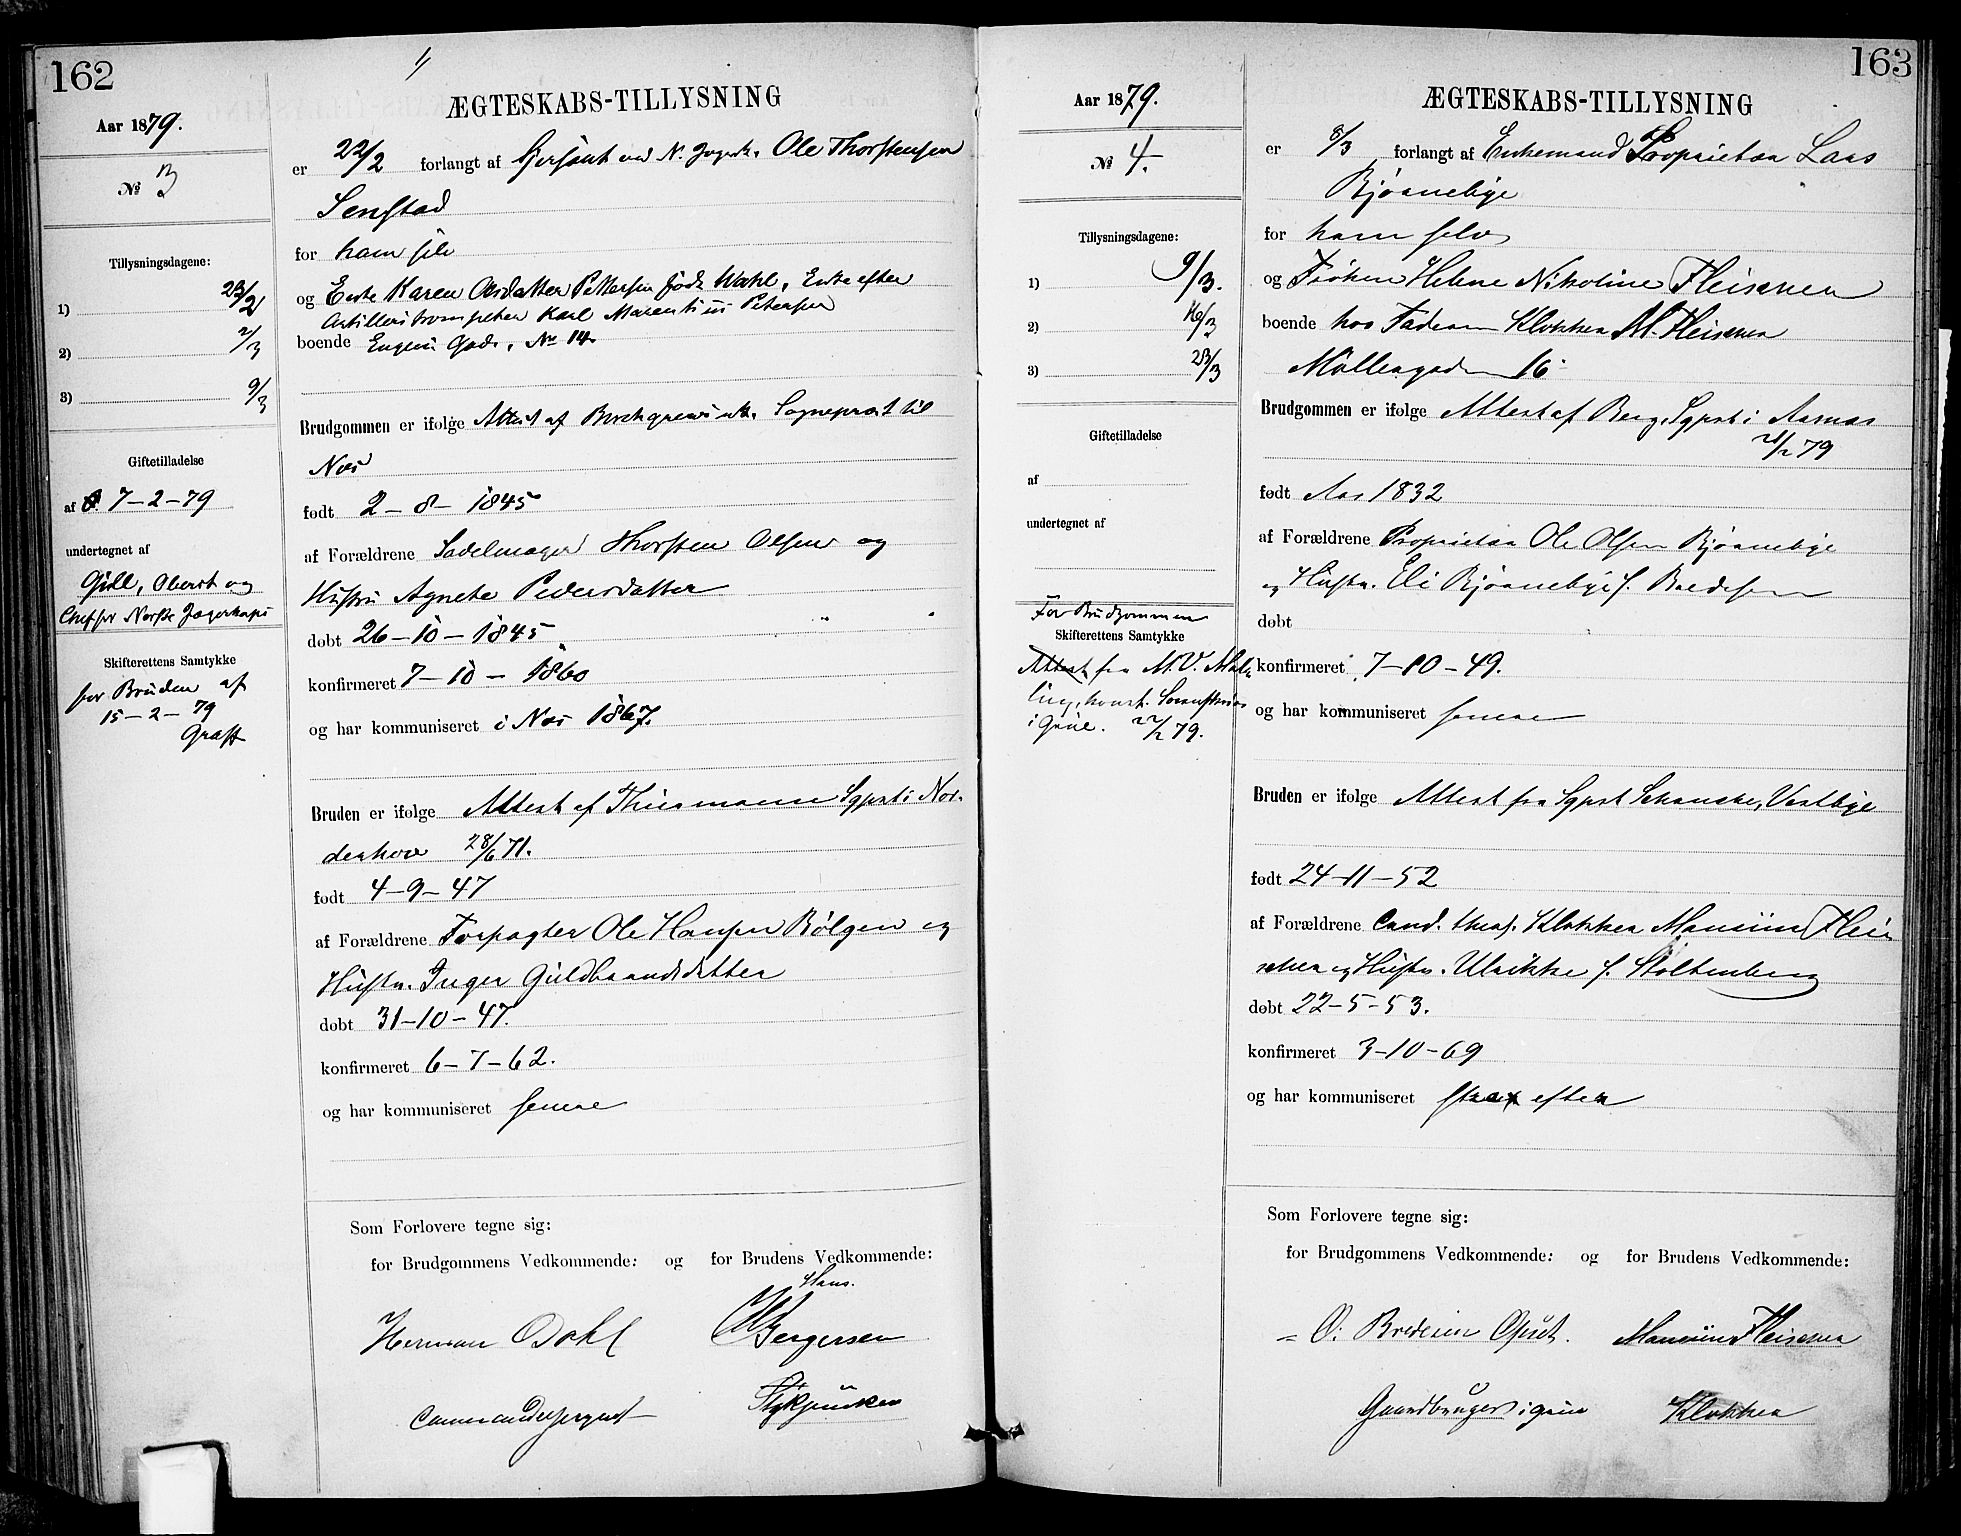 162
Aar 1879.
№ 3
Tillysningsdagene:
1) 23/2
2) 2/3
3) 9/3
Giftetilladelse
af 7-2-79
undertegnet af
Gill, Oberst og
Chef for Norske Jægerkorps
Skifterettens Samtykke
for Bruden af
15-2-79
ÆGTESKABS-TILLYSNING
er 22/2 forlangt af Sersiant ved N. Jægerk. Ole Thorstensen
Senstad
for ham selv
og Enke Karen Olsdatter Pettersen født Wahl, Enke efter
Artilleritrompeter Karl Marentius Petersen
boende Engens Gade, No 14.
Brudgommen er ifølge Attest af Borchgrevink, Sogneprest til
Næs
født 2-8-1845
af Forældrene Sadelmager Thorsten Olsen og
Hustru Agnete Pedersdatter
døbt 26-10-1845
konfirmeret 7-10-1860
og har kommuniseret i Næs 1867.
Bruden er ifølge Attest af Thurmann Sgpst i Nor-
derhov 28/6 71.
født 4-9-47
af Forældrene Forpagter Ole Hansen Bølgen og
Hustr. Inger Guldbrandsdatter
døbt 31-10-47.
konfirmeret 6-7-62.
og har kommuniseret senere
Som Forlovere tegne sig:
for Brudgommens Vedkommende: og for Brudens Vedkommende:
Hans.
Herman Dahl Bergersen
Commandersergent Stykjunker
163
Aar 1879.
№ 4.
Tillysningsdagene:
1) 9/3.
2) 16/3
3) 23/3
Giftetilladelse
af
undertegnet af
For Brudgommen
Skifterettens Samtykke
Attest fra M. V. Mal-
ling, konst. Sorenskriver
i Grue. 22/2 79.
ÆGTESKABS-TILLYSNING
er 8/3 forlangt af Enkemand Proprietær Lars
Bjørnebye
for ham selv
og Frøken Helene Nikoline Fleischer
boende hos Faderen Klokker M. Fleischer
Møllergaden 16
Brudgommen er ifølge Attest af Berg, Sgpst i Aasnes
21/2 79
født Aar 1832
af Forældrene Proprietær Ole Olsen Bjørnebye
og Hustr. Eli Bjørnebye f.
døbt
konfirmeret 7-10-49.
og har kommuniseret senere
Bruden er ifølge Attest fra Sgpst Schanche, Vestbye
født 24-11-52
af Forældrene Cand. theol. Klokker Mancuun Flei-
scher og Hustr. Ulrikke f. Stoltenberg
døbt 22-5-53.
konfirmeret 3-10-69
og har kommuniseret strax efter
Som Forlovere tegne sig:
for Brudgommens Vedkommende: og for Brudens Vedkommende:
O. Opset. Fleischer
Gaardbruger i Grue Klokker